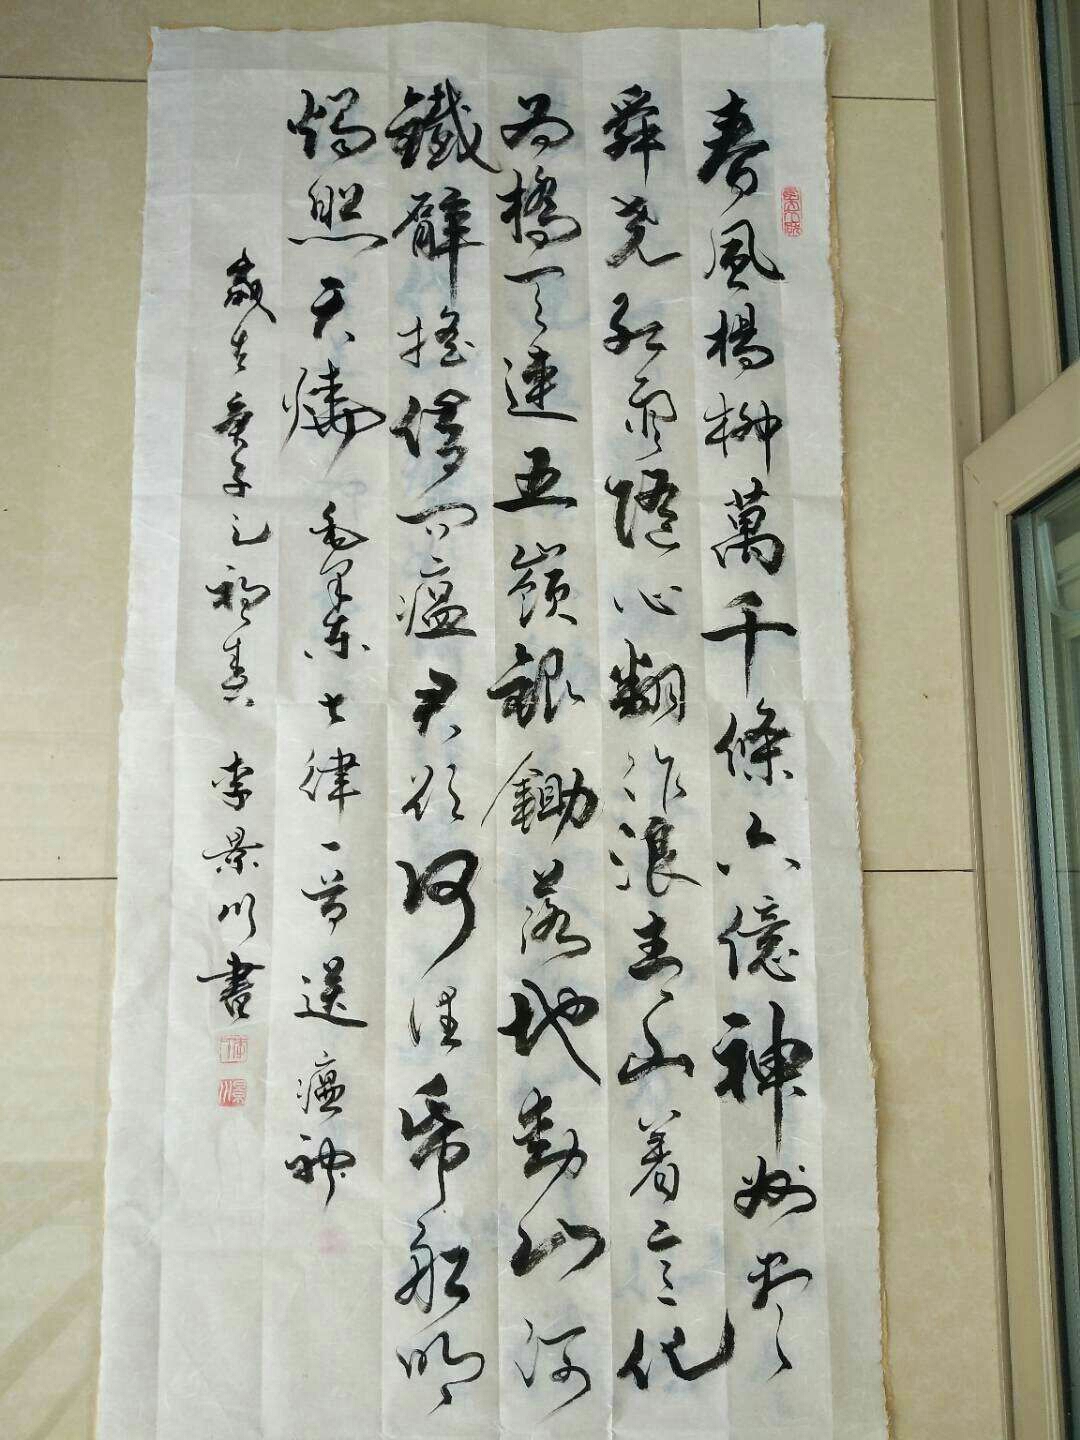 春風楊柳萬千條六億神州盡
舜尧红雨隨心翻作浪青山着意化
为橋天連五嶺銀鋤落地動山河
鐵臂搖借问瘟君欲何往纸船明
燭照天燒 毛泽东七律一首送瘟神
歲在庚子之 李景川書